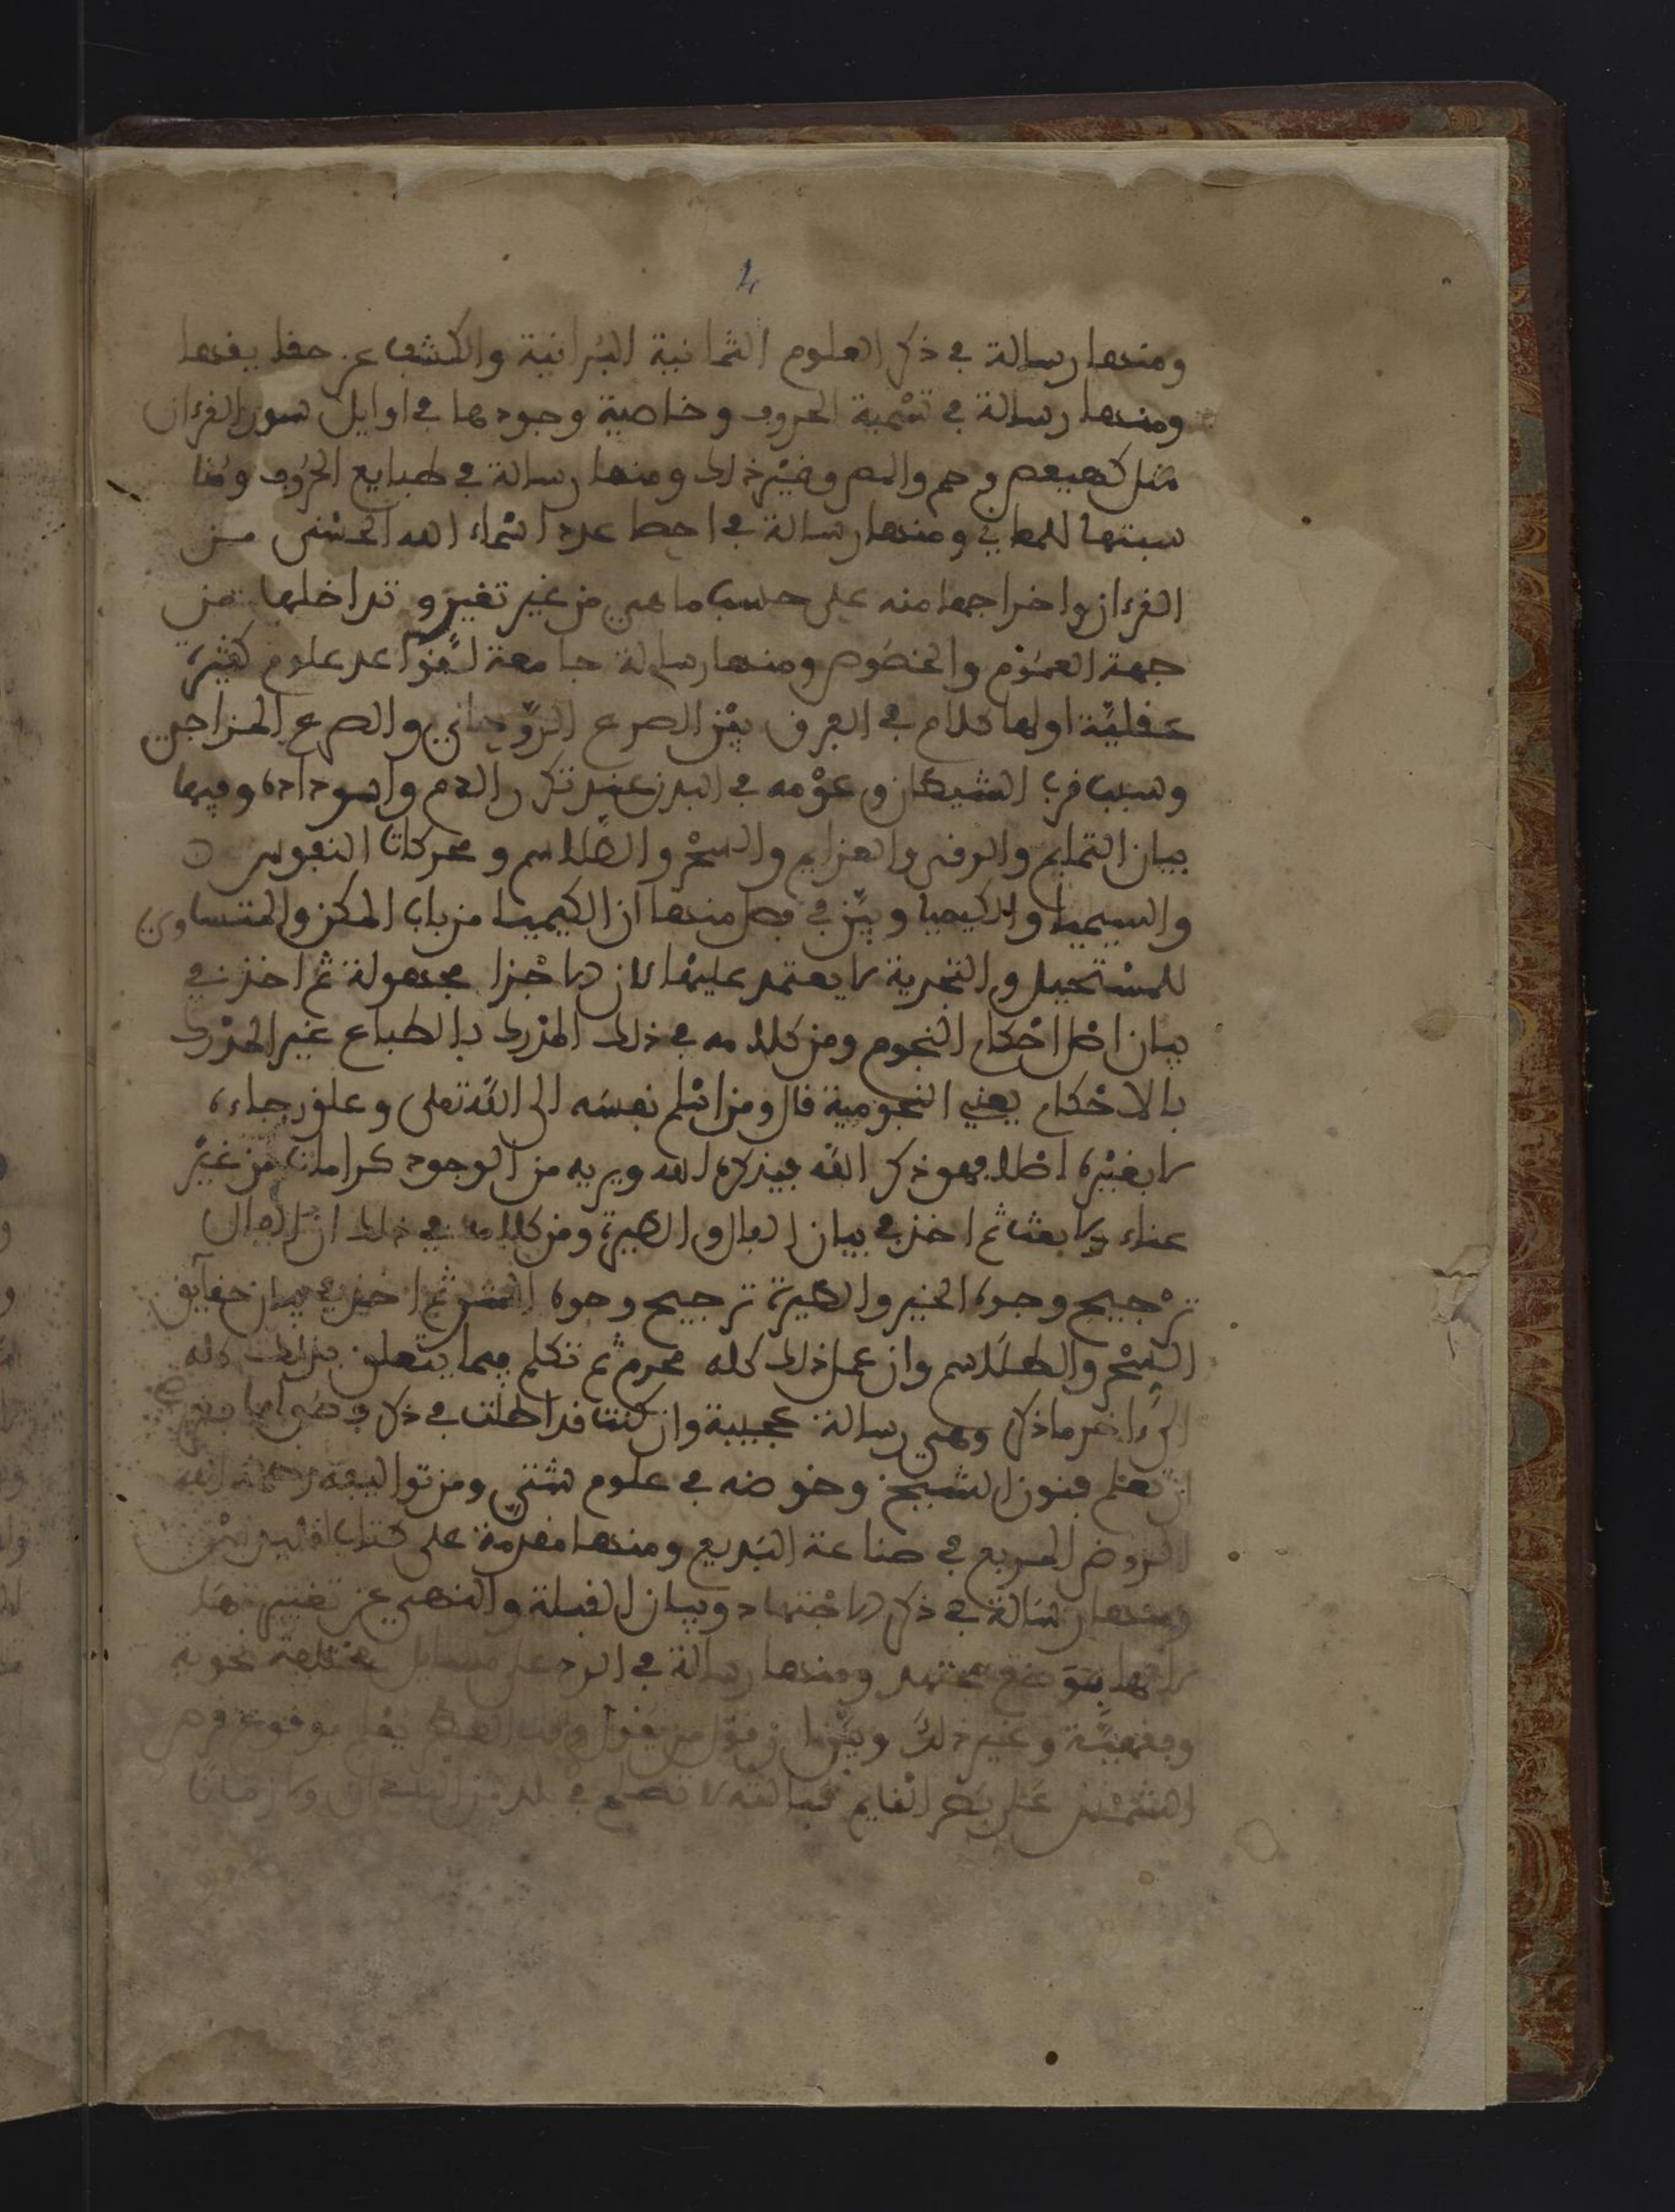 ومنها رسالة في ذكر العلوم الثمانية البرانية والكشف عن حقايقها
ومنها رسالة في تسمية الحروف وخاصية وجودها في اوايل سور القرءان
مثل كهيعص وحم والمص وغير ذلك ومنها رسالة في طبايع الحروف ومنا
سبتها للمعاني ومنها رسالة في احصا عدد اسماء الله الحسنى من
القرءان واخراجها منه على حسب ما هي من غير تغير وتداخلها من
جهة العموم والخصوص ومنها رسالة جامعة لقواعد علوم كثيرة
عقلية اولها كلام في الفرق بين الصرع الروحاني والصرع المزاجي
وسبب قرب الشيطان وعومه في البدن عند تكدر الدم واسوداده وفيها
بيان التمايم والرقى والعزايم والسحر والطلاسم ومحركات النفوس
والسيميا والكيميا وبين في فصل منها ان الكيميا من باب الممكن والمتساوي
للمستحيل والتجربة لا يعتمد عليها لان الاجزا مجهولة ثم اخذ في
بيان اصل احكام النجوم ومن كلامه في ذلك المدرك بالطباع غير المدرك
بالاحكام يعني النجومية قال ومن اسلم نفسه الى الله تعلى وعلق رجاءه
لا بغيره اصلا فهو ذكر الله فيذكره الله ويريه من الوجود كرامات من غير
عناء ولا بعث ثم اخذ في بيان الفال والطيرة ومن كلامه في ذلك ان الفال
ترجيح وجوه الخير والطيرة ترجيح وجوه الشر ثم اخذ في بيان حقايق
السحر والطلاسم وان عمل ذلك كله محرم ثم تكلم فيما يتعلق بذلك كله
الى ءاخر ما ذكر وهي رسالة عجيبة وان كنت قد اطلت في ذكر
ان تعلم فنون الشيخ وخوضه في علوم شتى ومن تواليفه رحمه الله
الروض المريع في صناعة البديع ومنها مقدمة على كتاب اقليدس
ومنها رسالة في ذكر الاجتهاد وبيان القبلة والنهي عن تغييرها
لانها بوضع مجتهد ومنها رسالة في الرد على مسايل مختلفة نحوية
وفقهية وغير ذلك وبين ان قول من يقول وقت بوقوع قرص
الشمس على بصر القايم قبالته لا تصلح في بلد من البلدان ولا زمان